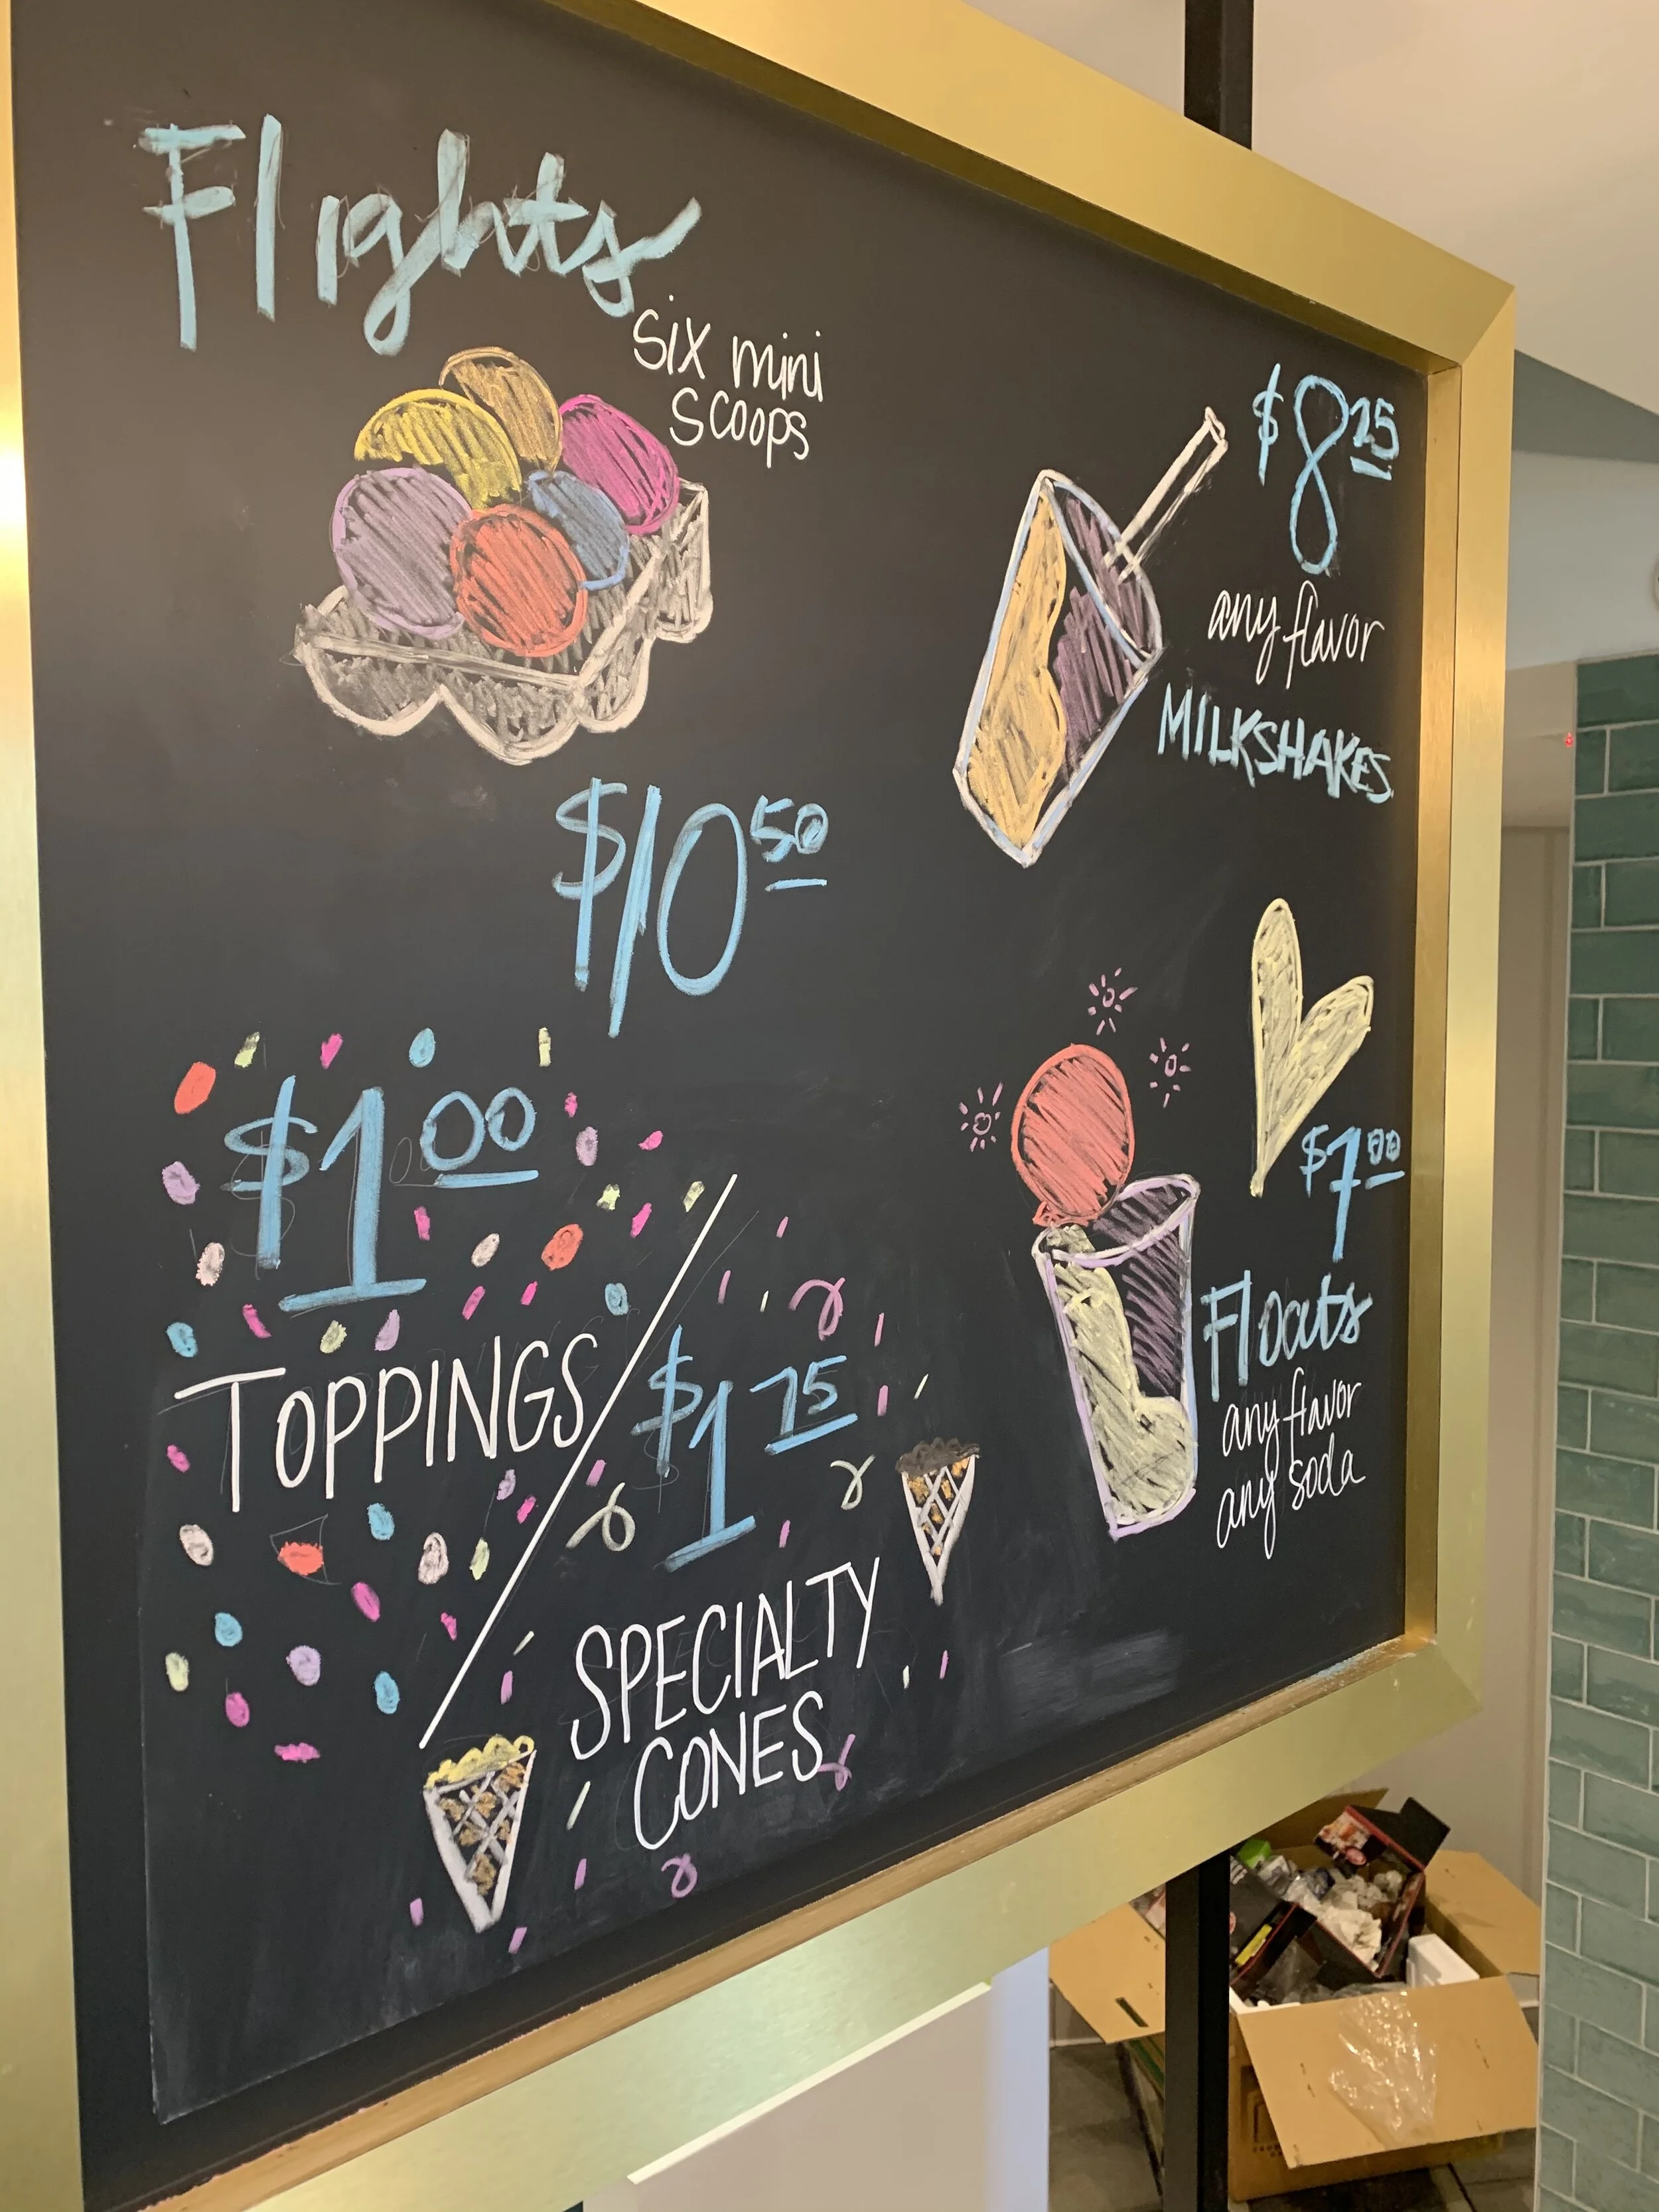 Flights
six mini
scoops
$10 50
$8 25
any flavor
MILKSHAKES
$1 00
TOPPINGS
$1 75
SPECIALTY
CONES
$7 00
Floats
any flavor
any soda